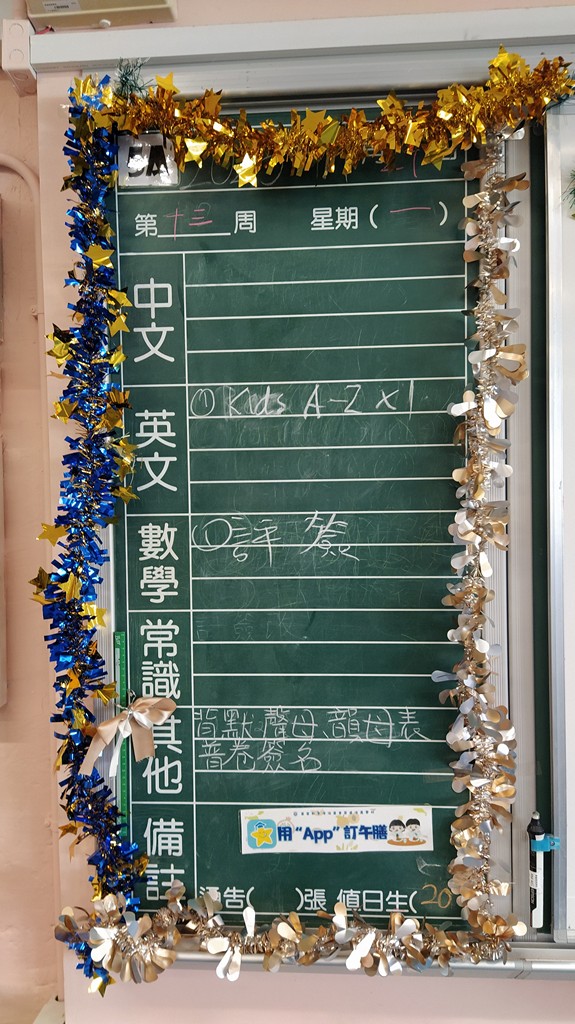 5A
第十三周 星期(一)
中文
英文
① Kids A-Z x1
數學
①評 簽
常識
其他
背默聲母、韻母表
普卷簽名
備註
用“App”訂午膳
通告( )張 值日生(20